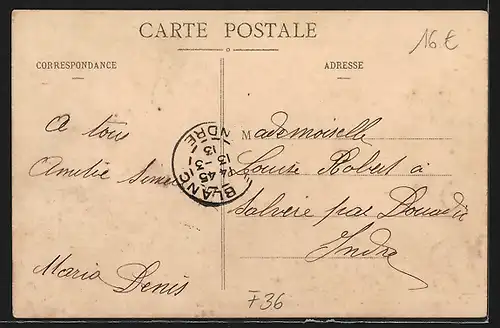 CARTE POSTALE
16 €
CORRESPONDANCE
ADRESSE
A tous
Amitié
Maria Denis
Mademoiselle
Louise Robert à
par Douadic
Indre
BLANC
INDRE
13-3
13
F36